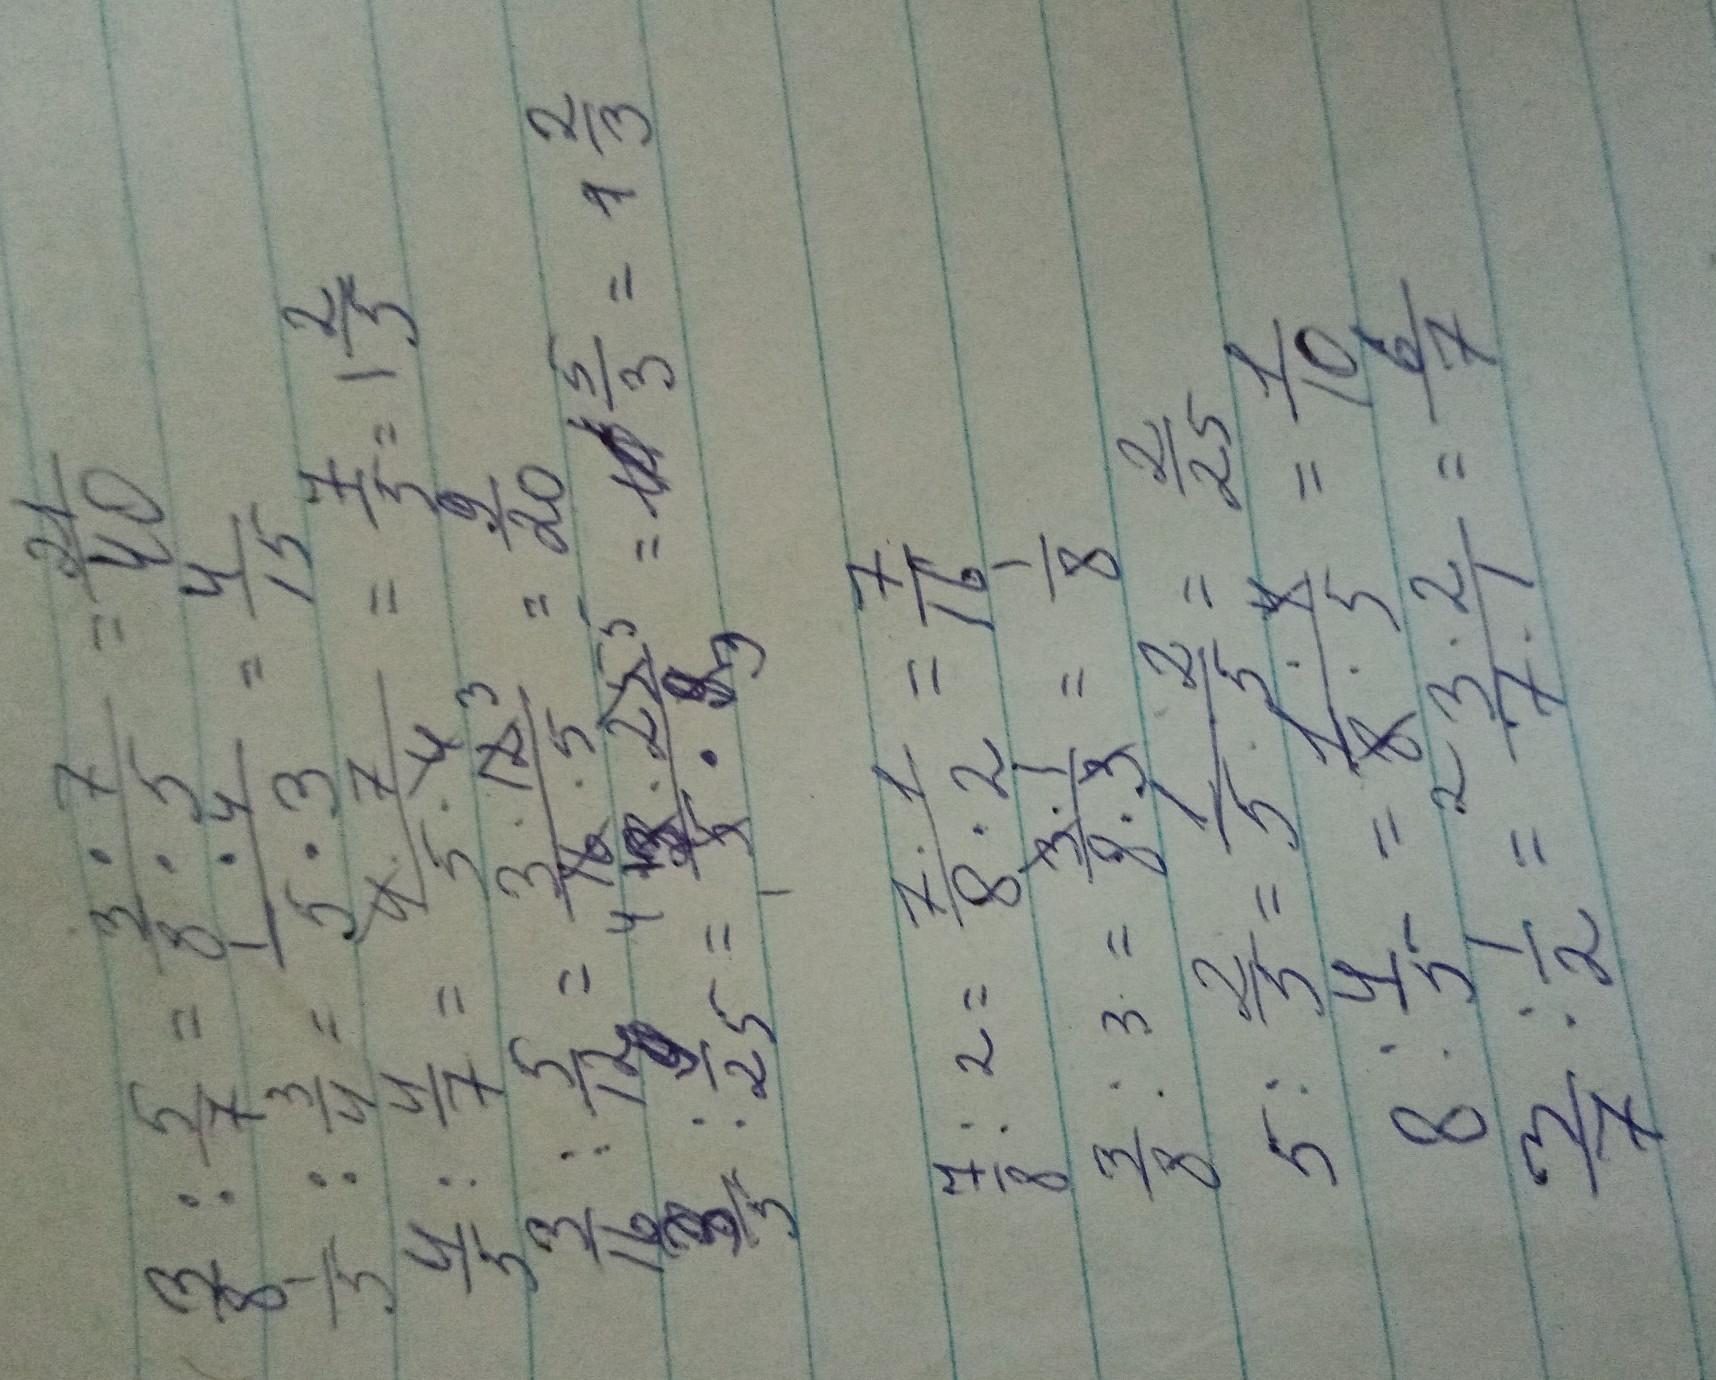 3/8 : 5/7 = 3·7/8·5 = 21/40
1/5 : 3/4 = 1·4/5·3 = 4/15
4/5 : 4/7 = 4·7/5·4 = 7/5 = 1 2/5
3/16 : 5/12 = 3·12 3/16·5 4 = 9/20
/5 : 9/25 = ·25 5/5·9 1 = 5/3 = 1 2/3
7/8 : 2 = 7·1/8·2 = 7/16
3/8 : 3 = 3·1/8·3 = 1/8
5 : 2/5 = 1/5 · 2/5 = 2/25
8 : 4/5 = 1·4/8·5 2 = 1/10
3/7 : 1/2 = 3·2/7·1 = 6/7